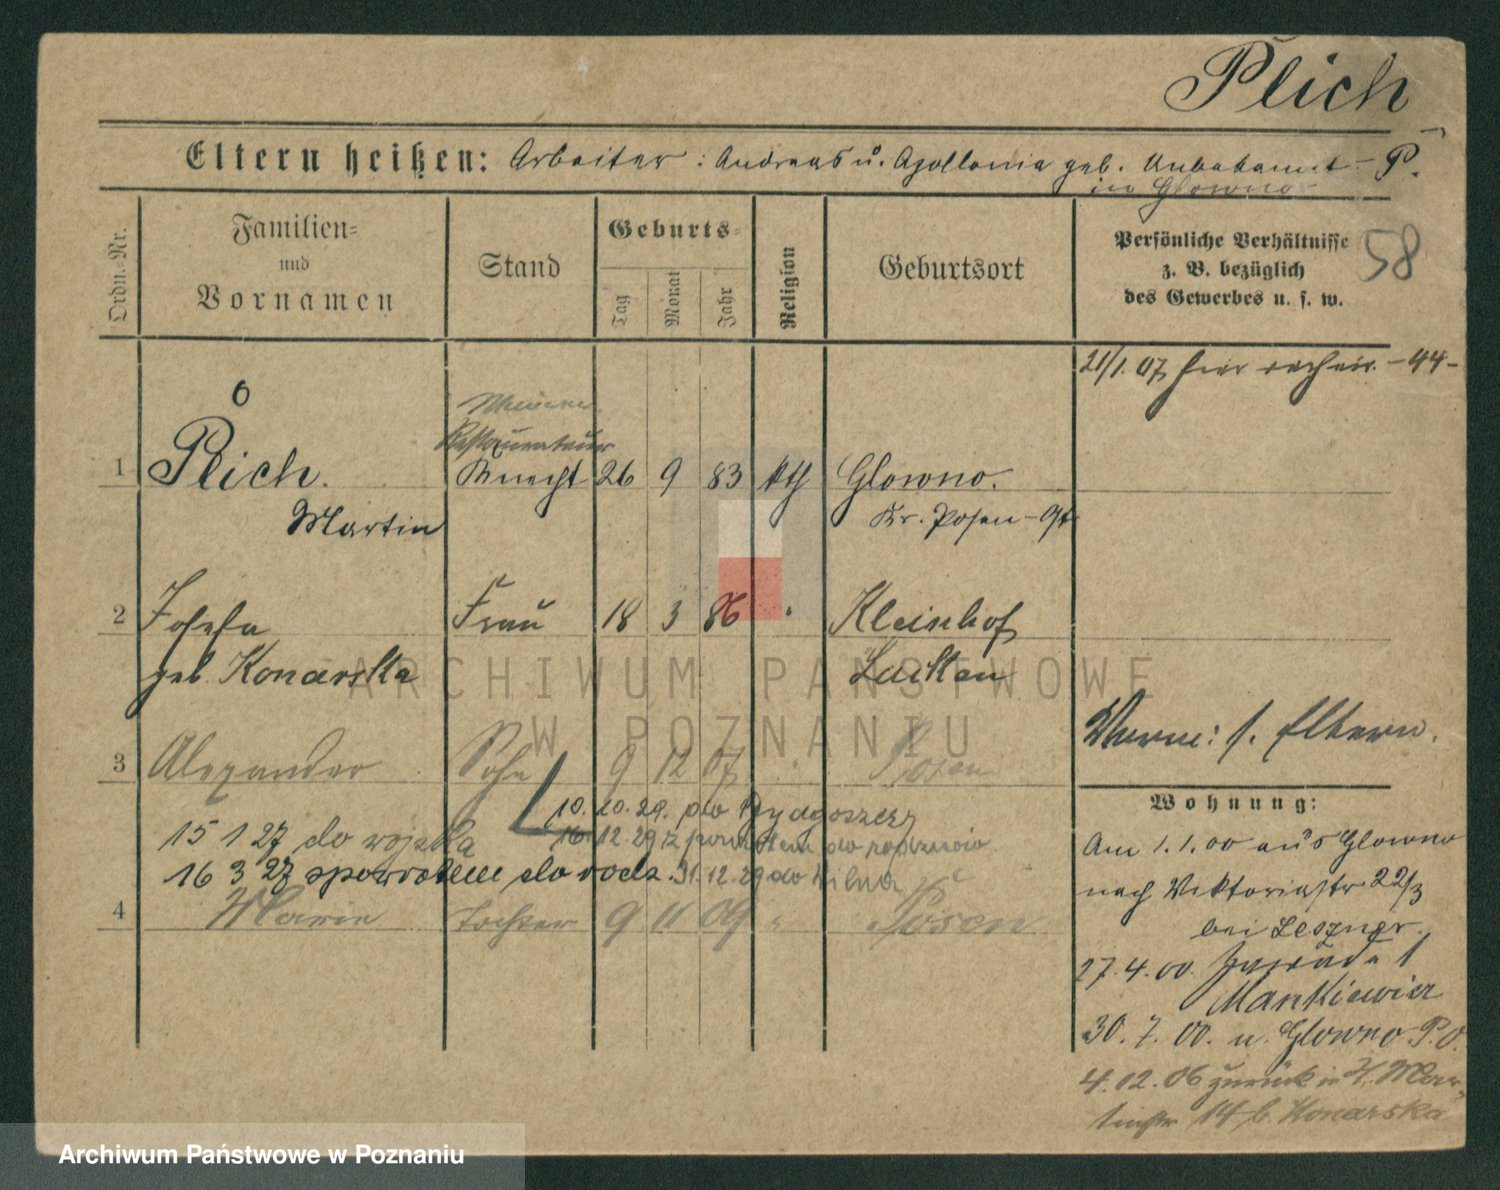 Plich
Eltern heißen: Arbeiter: Andreas u. Apollonia geb. Unbekannt - P.
in Glowno
Ordn.-Nr.
Familien-
und
Vornamen
Stand
Geburts-
Tag
Monat
Jahr
Religion
Geburtsort
Persönliche Verhältnisse
z. B. bezüglich
des Gewerbes u. s. w.
58
21/1. 07 hier -44-
Restaurateur
1 Plich. Knecht 26 9 83 kth Glowno.
Martin Kr. Posen-Ost
2 Josefa Frau 18 3 86 " Kleinhof
geb. Konarska
Verm: s. Eltern.
3 Alexander Sohn 9 12 07 " Posen
Wohnung:
10.10.29. do Bydgoszczy
15 1 27 do wojska 16.12.29 z powrotem do rodziców
16 3 27 spowrotem do rodz. 31.12.29 do Wilna
4 Marie Tochter 9 11 09 " Posen
Am 1.1.00 aus Glowno
nach Viktoriastr 22/23
bei Leszner.
27.4.00
Mankiewicz
30.7.00. n. Glowno P.O.
4.12.06 zurück in
14 b. Konarska
ARCHIWUM PAŃSTWOWE
W POZNANIU
Archiwum Państwowe w Poznaniu